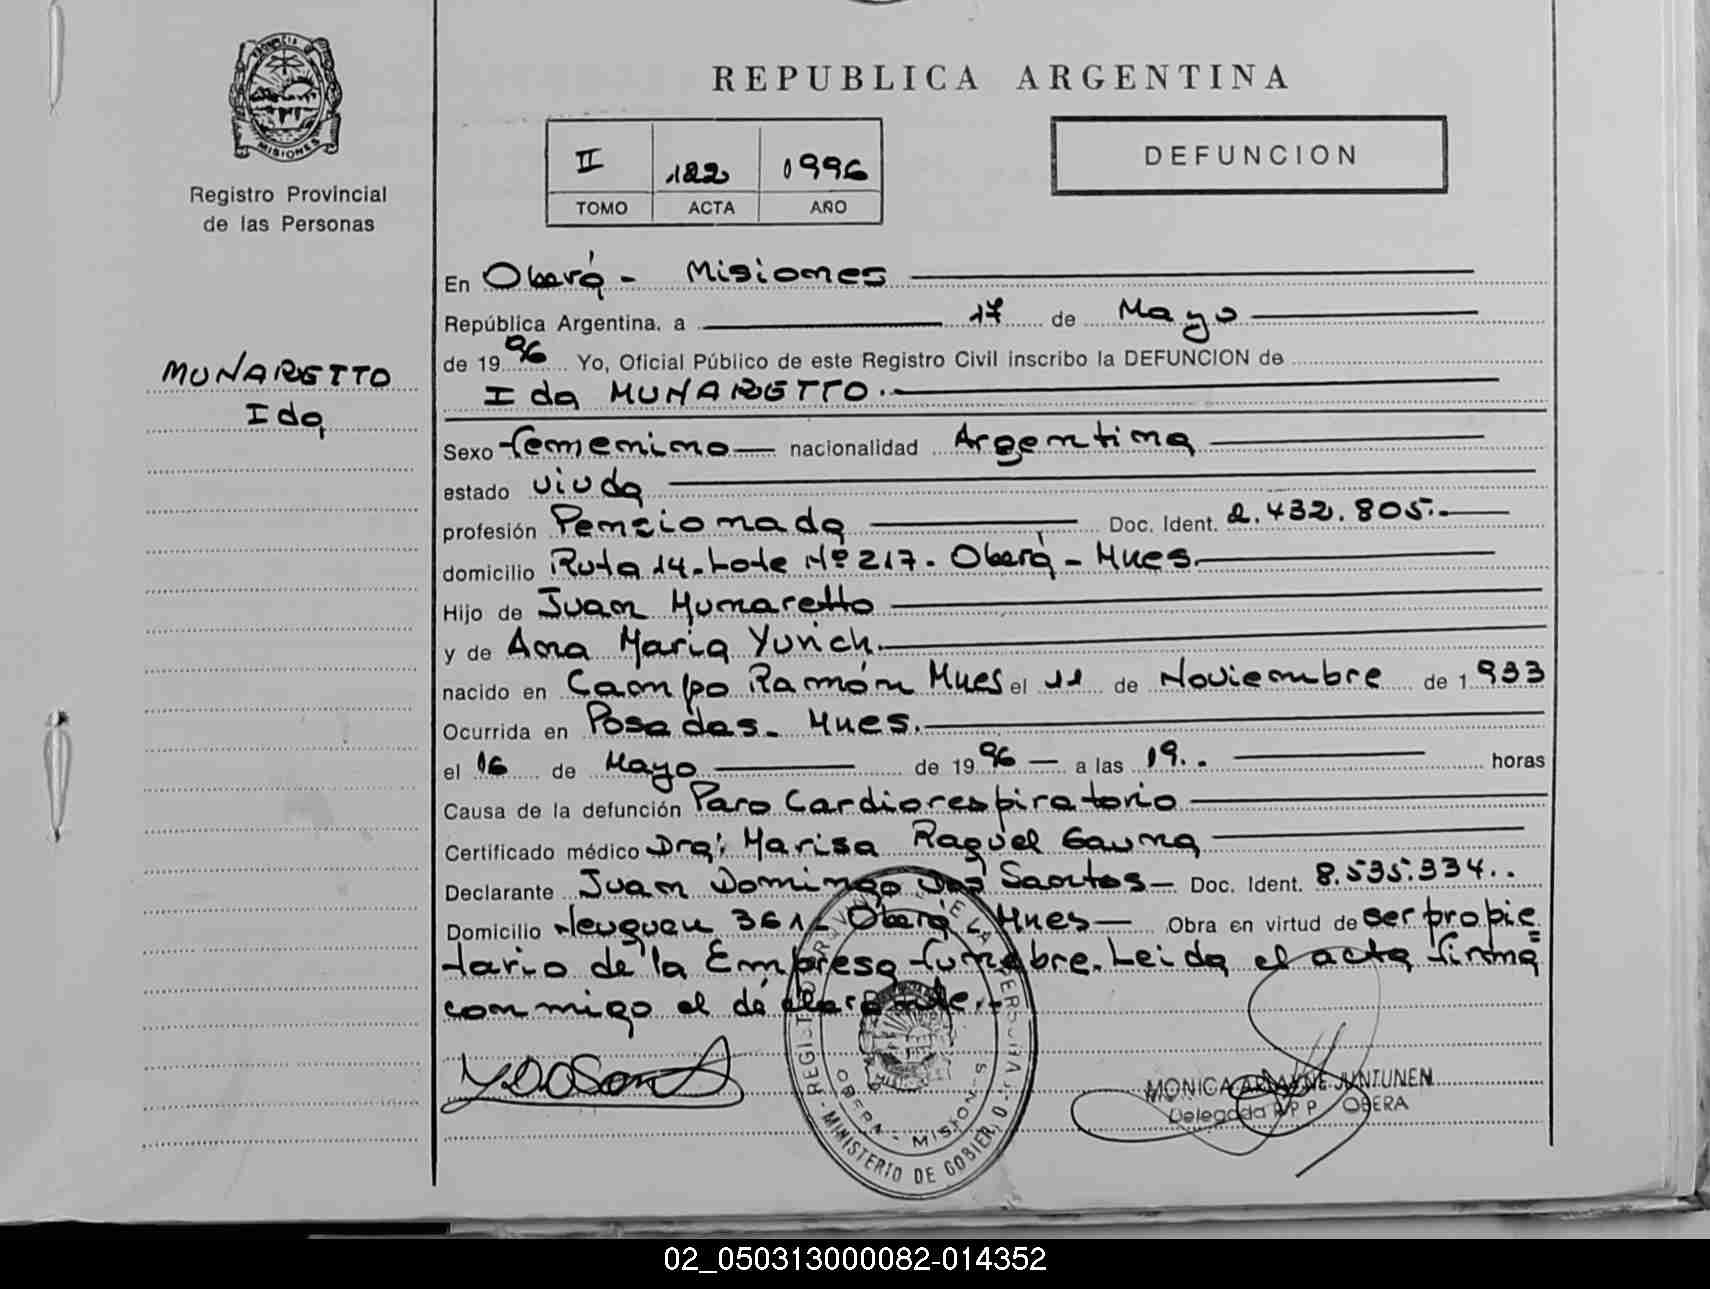 PROVINCIA DE
MISIONES
Registro Provincial
de las Personas
REPUBLICA ARGENTINA
II 122 1996
TOMO ACTA AÑO
DEFUNCION
MUNARETTO
Ida
En Oberá - Misiones
República Argentina, a 17 de Mayo
de 19 96 Yo, Oficial Público de este Registro Civil inscribo la DEFUNCION de
Ida MUNARETTO.
Sexo femenino nacionalidad Argentina
estado viuda
profesión Pencionada Doc. Ident. 2.432.805.-
domicilio Ruta 14. Lote Nº 217. Oberá - Mnes.
Hijo de Juan Munaretto
y de Ana Maria Yurich.
nacido en Campo Ramón Mnes el 11 de Noviembre de 1 933
Ocurrida en Posadas. Mnes.
el 16 de Mayo de 19 96 a las 19.. horas
Causa de la defunción Paro Cardiorespiratorio
Certificado médico Dra: Marisa Raquel Gauna
Declarante Juan Domingo Dos Santos - Doc. Ident. 8.535.334..
Domicilio Neuquen 361 - Oberá Mnes Obra en virtud de ser propie
tario de la Empresa funebre. Leida el acta firma
conmigo el declarante..
REGISTRO PROVINCIAL DE LAS PERSONAS
OBERA - MISIONES
MINISTERIO DE GOBIERNO
MONICA JUNTUNEN
Delegada R P P OBERA
02_050313000082-014352